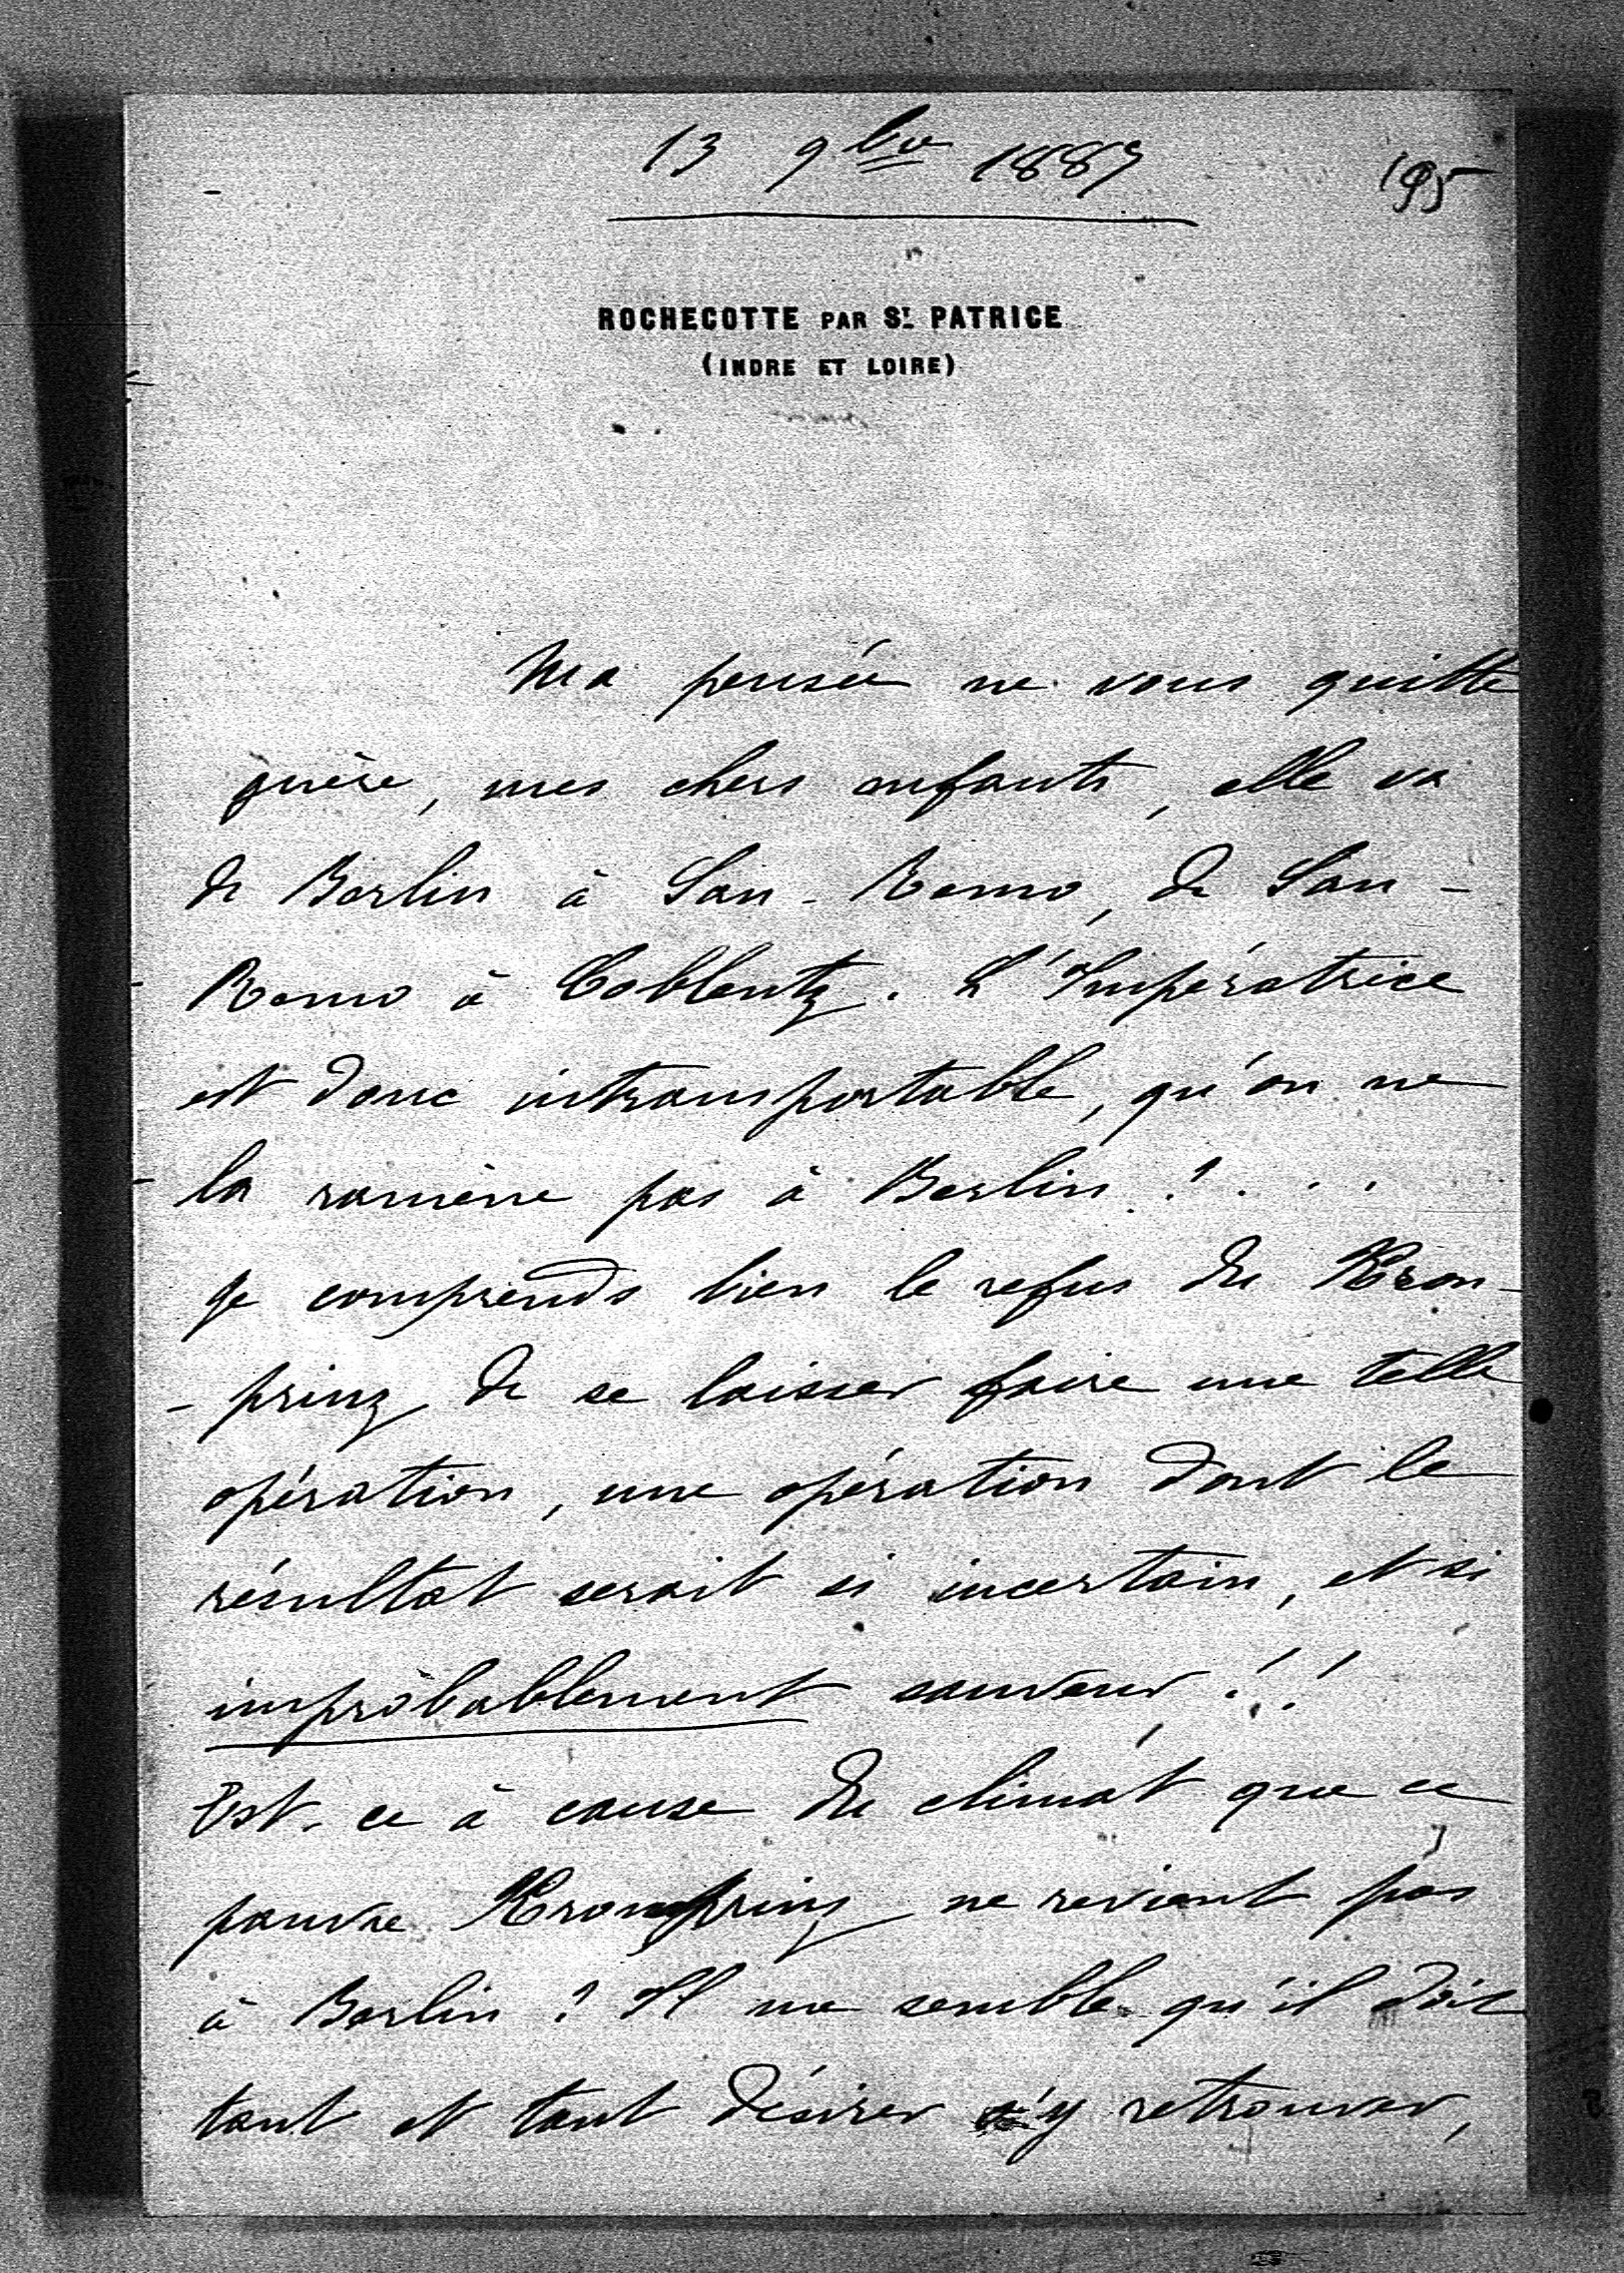 13 9bre 1887
195
ROCHECOTTE PAR ST. PATRICE
(INDRE ET LOIRE)
Ma pensée ne vous quitte
guère, mes chers enfants, elle va
de Berlin à San-Remo, de San-
Remo à Coblentz. L'Impératrice
est donc intransportable, qu'on ne
la ramène pas à Berlin ? . . .
Je comprends bien le refus du Kron-
-prinz de se laisser faire une telle
opération, une opération dont le
résultat serait si incertain, et si
improbablement sauveur !!
Est-ce à cause du climat que ce
pauvre Kronprinz ne revient pas
à Berlin ? Il me semble qu'il doit
tant et tant désirer s'y retrouver,